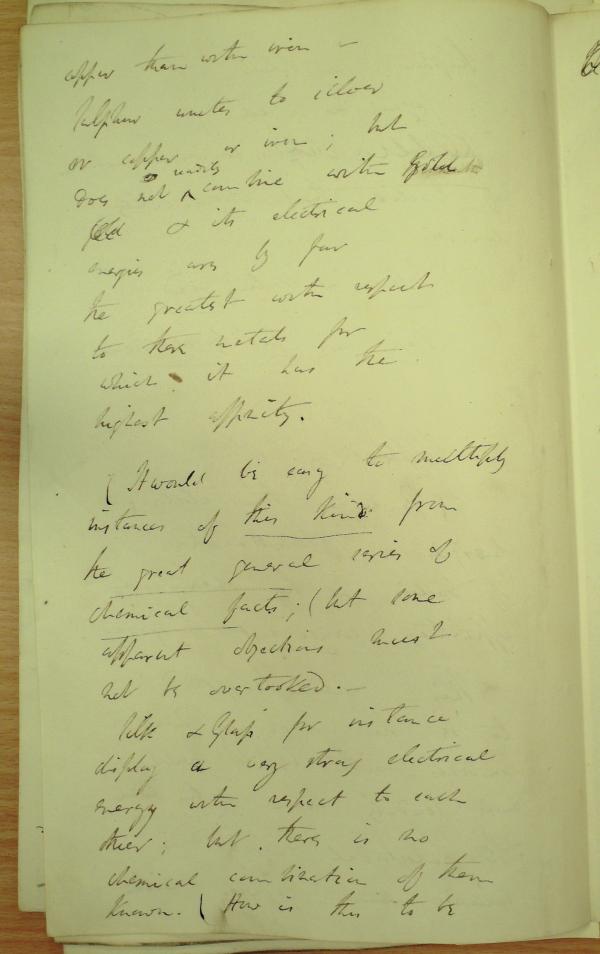 copper than with iron –
Sulphur unites to silver
or copper or iron; but
does not ^ readily combine with Gold
& its electrical
energies are by far
the greatest with respect
to these metals for
which it has the
highest affinity.
( It would be easy to multiply
instances of this kind from
the great general series of
chemical facts; ( but some
apparent objections must
not be overlooked. –
Silk & Glass for instance
display a very strong electrical
energy with respect to each
other; but there is no
chemical combination of them
known. ( How is this to be